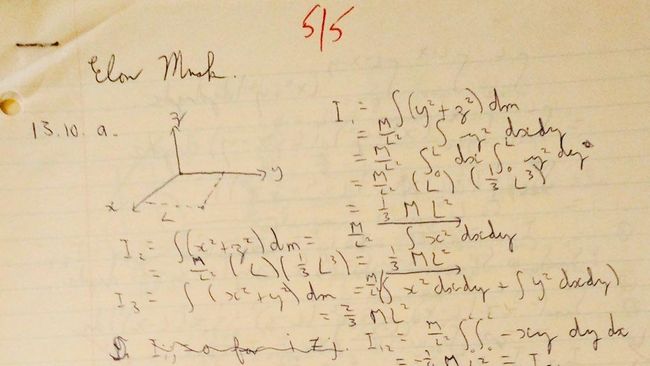 5/5
Elon Musk.
13.10. a.
z
y
x
L
I₁ = ∫(y² + z²) dm
= M/L² ∫ y² dxdy
= M/L² ∫₀ᴸ dx ∫₀ᴸ y² dy
= M/L² (L) (1/3 L³)
= 1/3 ML²
I₂ = ∫(x² + z²) dm = M/L² ∫ x² dxdy
= M/L² (L)(1/3 L³) = 1/3 ML²
I₃ = ∫ (x² + y²) dm = M/L² (∫ x² dxdy + ∫ y² dxdy)
= 2/3 ML²
I₁₂ = M/L² ∫₀ᴸ∫₀ᴸ -xy dy dx